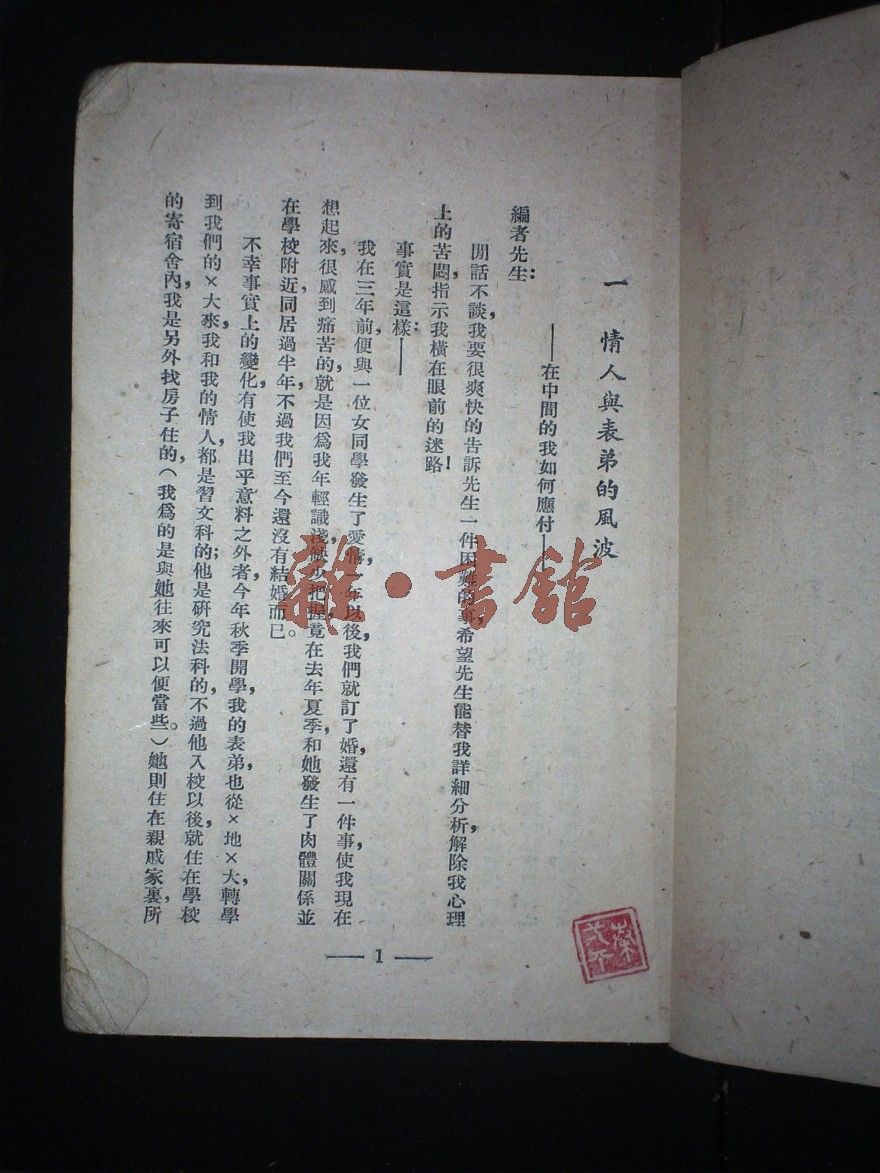 一 情人與表弟的風波
——在中間的我如何應付——
編者先生：
閒話不談，我要很爽快的告訴先生一件困難的事，希望先生能替我詳細分析，解除我心理
上的苦悶，指示我橫在眼前的迷路！
事實是這樣：——
我在三年前，便與一位女同學發生了愛情，一年以後，我們就訂了婚，還有一件事，使我現在
想起來，很感到痛苦的，就是因爲我年輕識淺，缺少把握，竟在去年夏季，和她發生了肉體關係，並
在學校附近，同居過半年，不過我們至今還沒有結婚而已。
不幸事實上的變化，有使我出乎意料之外者，今年秋季開學，我的表弟，也從×地×大，轉學
到我們的×大來，我和我的情人，都是習文科的；他是硏究法科的，不過他入校以後，就住在學校
的寄宿舍內，我是另外找房子住的，（我爲的是與她往來可以便當些。）她則住在親戚家裏，所
— 1 —
雜·書館